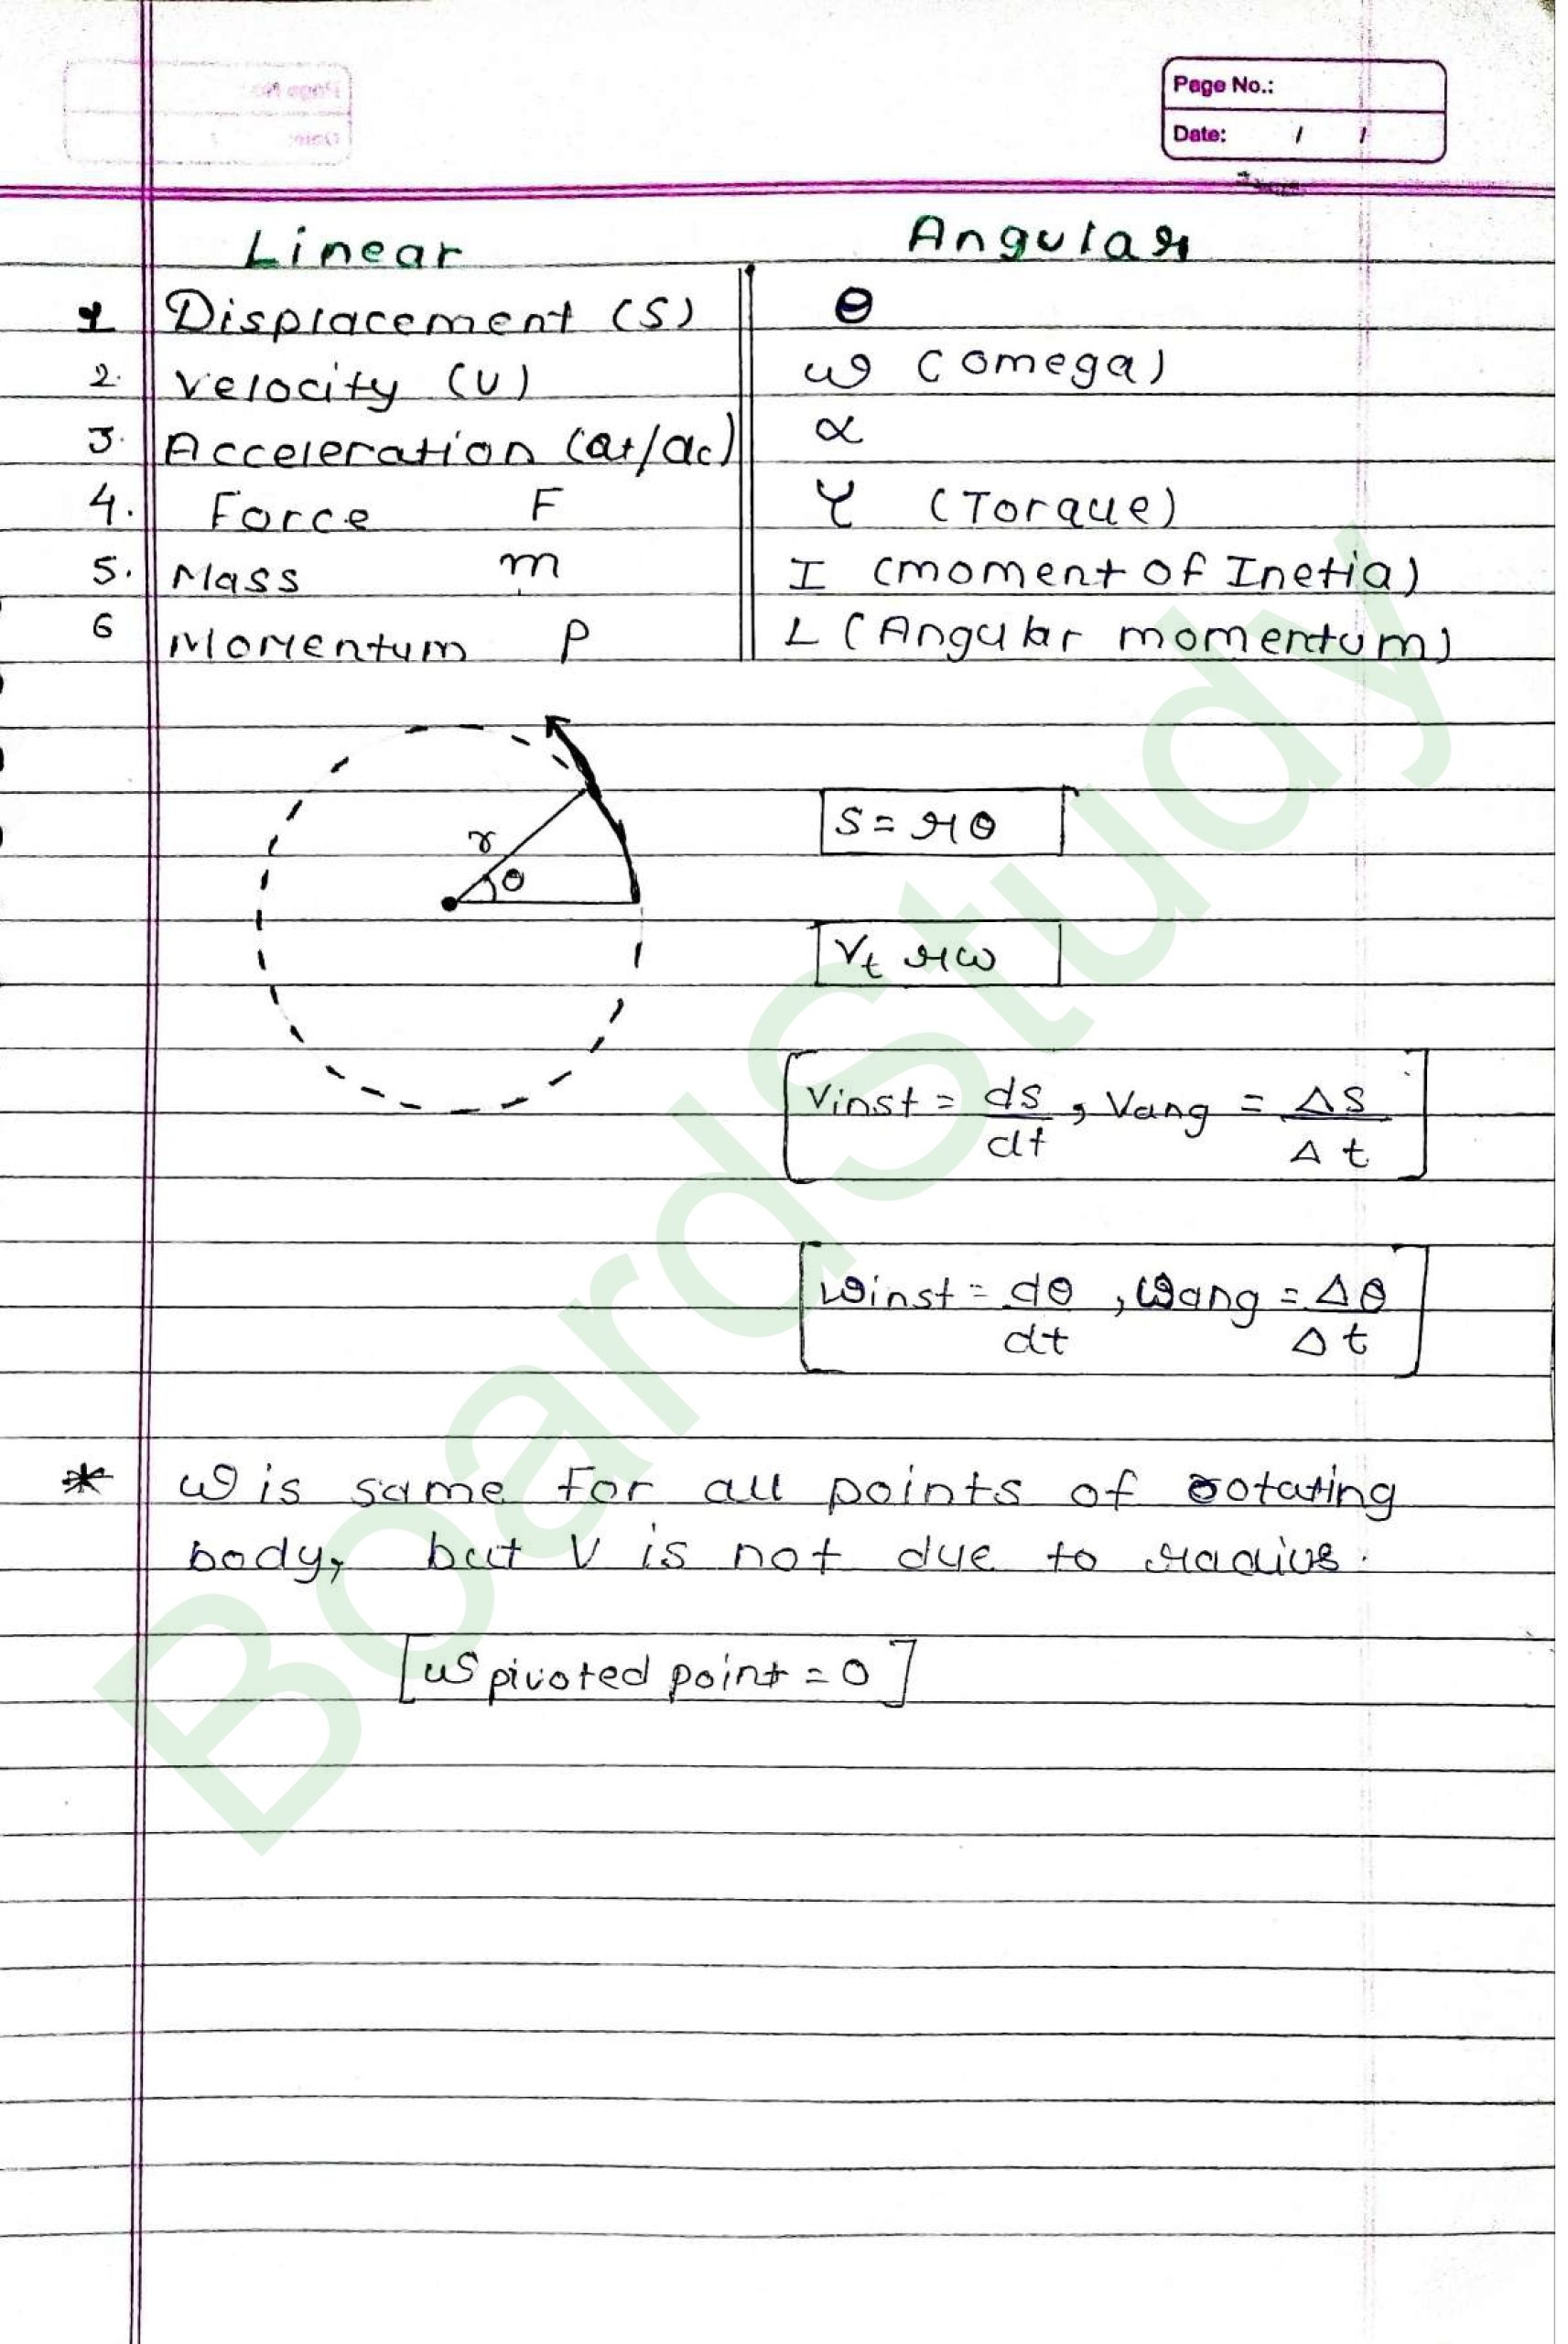 Page No.:
Date: / /
Linear Angular
1 Displacement (S) θ
2. Velocity (v) ω (omega)
3. Acceleration (at/ac) α
4. Force F τ (Torque)
5. Mass m I (moment of Inetia)
6 Momentum P L (Angular momentum)
r
θ
S = rθ
Vt rω
Vinst = ds/dt, Vang = Δs/Δt
ωinst = dθ/dt, ωang = Δθ/Δt
* ω is same for all points of rotating
body, but V is not due to radius.
[ω pivoted point = 0]
BoardStudy